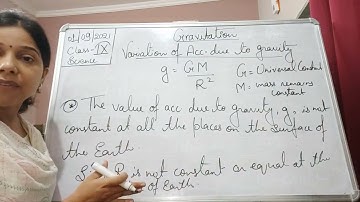 01/09/2021
Class-IX
Science
Gravitation
Variation of Acc. due to gravity
g = GM
R²
G = Universal Constant
M = mass remains constant
The value of acc due to gravity, g, is not
constant at all the places on the surface of
the Earth.
R is not constant or equal at the
of Earth.